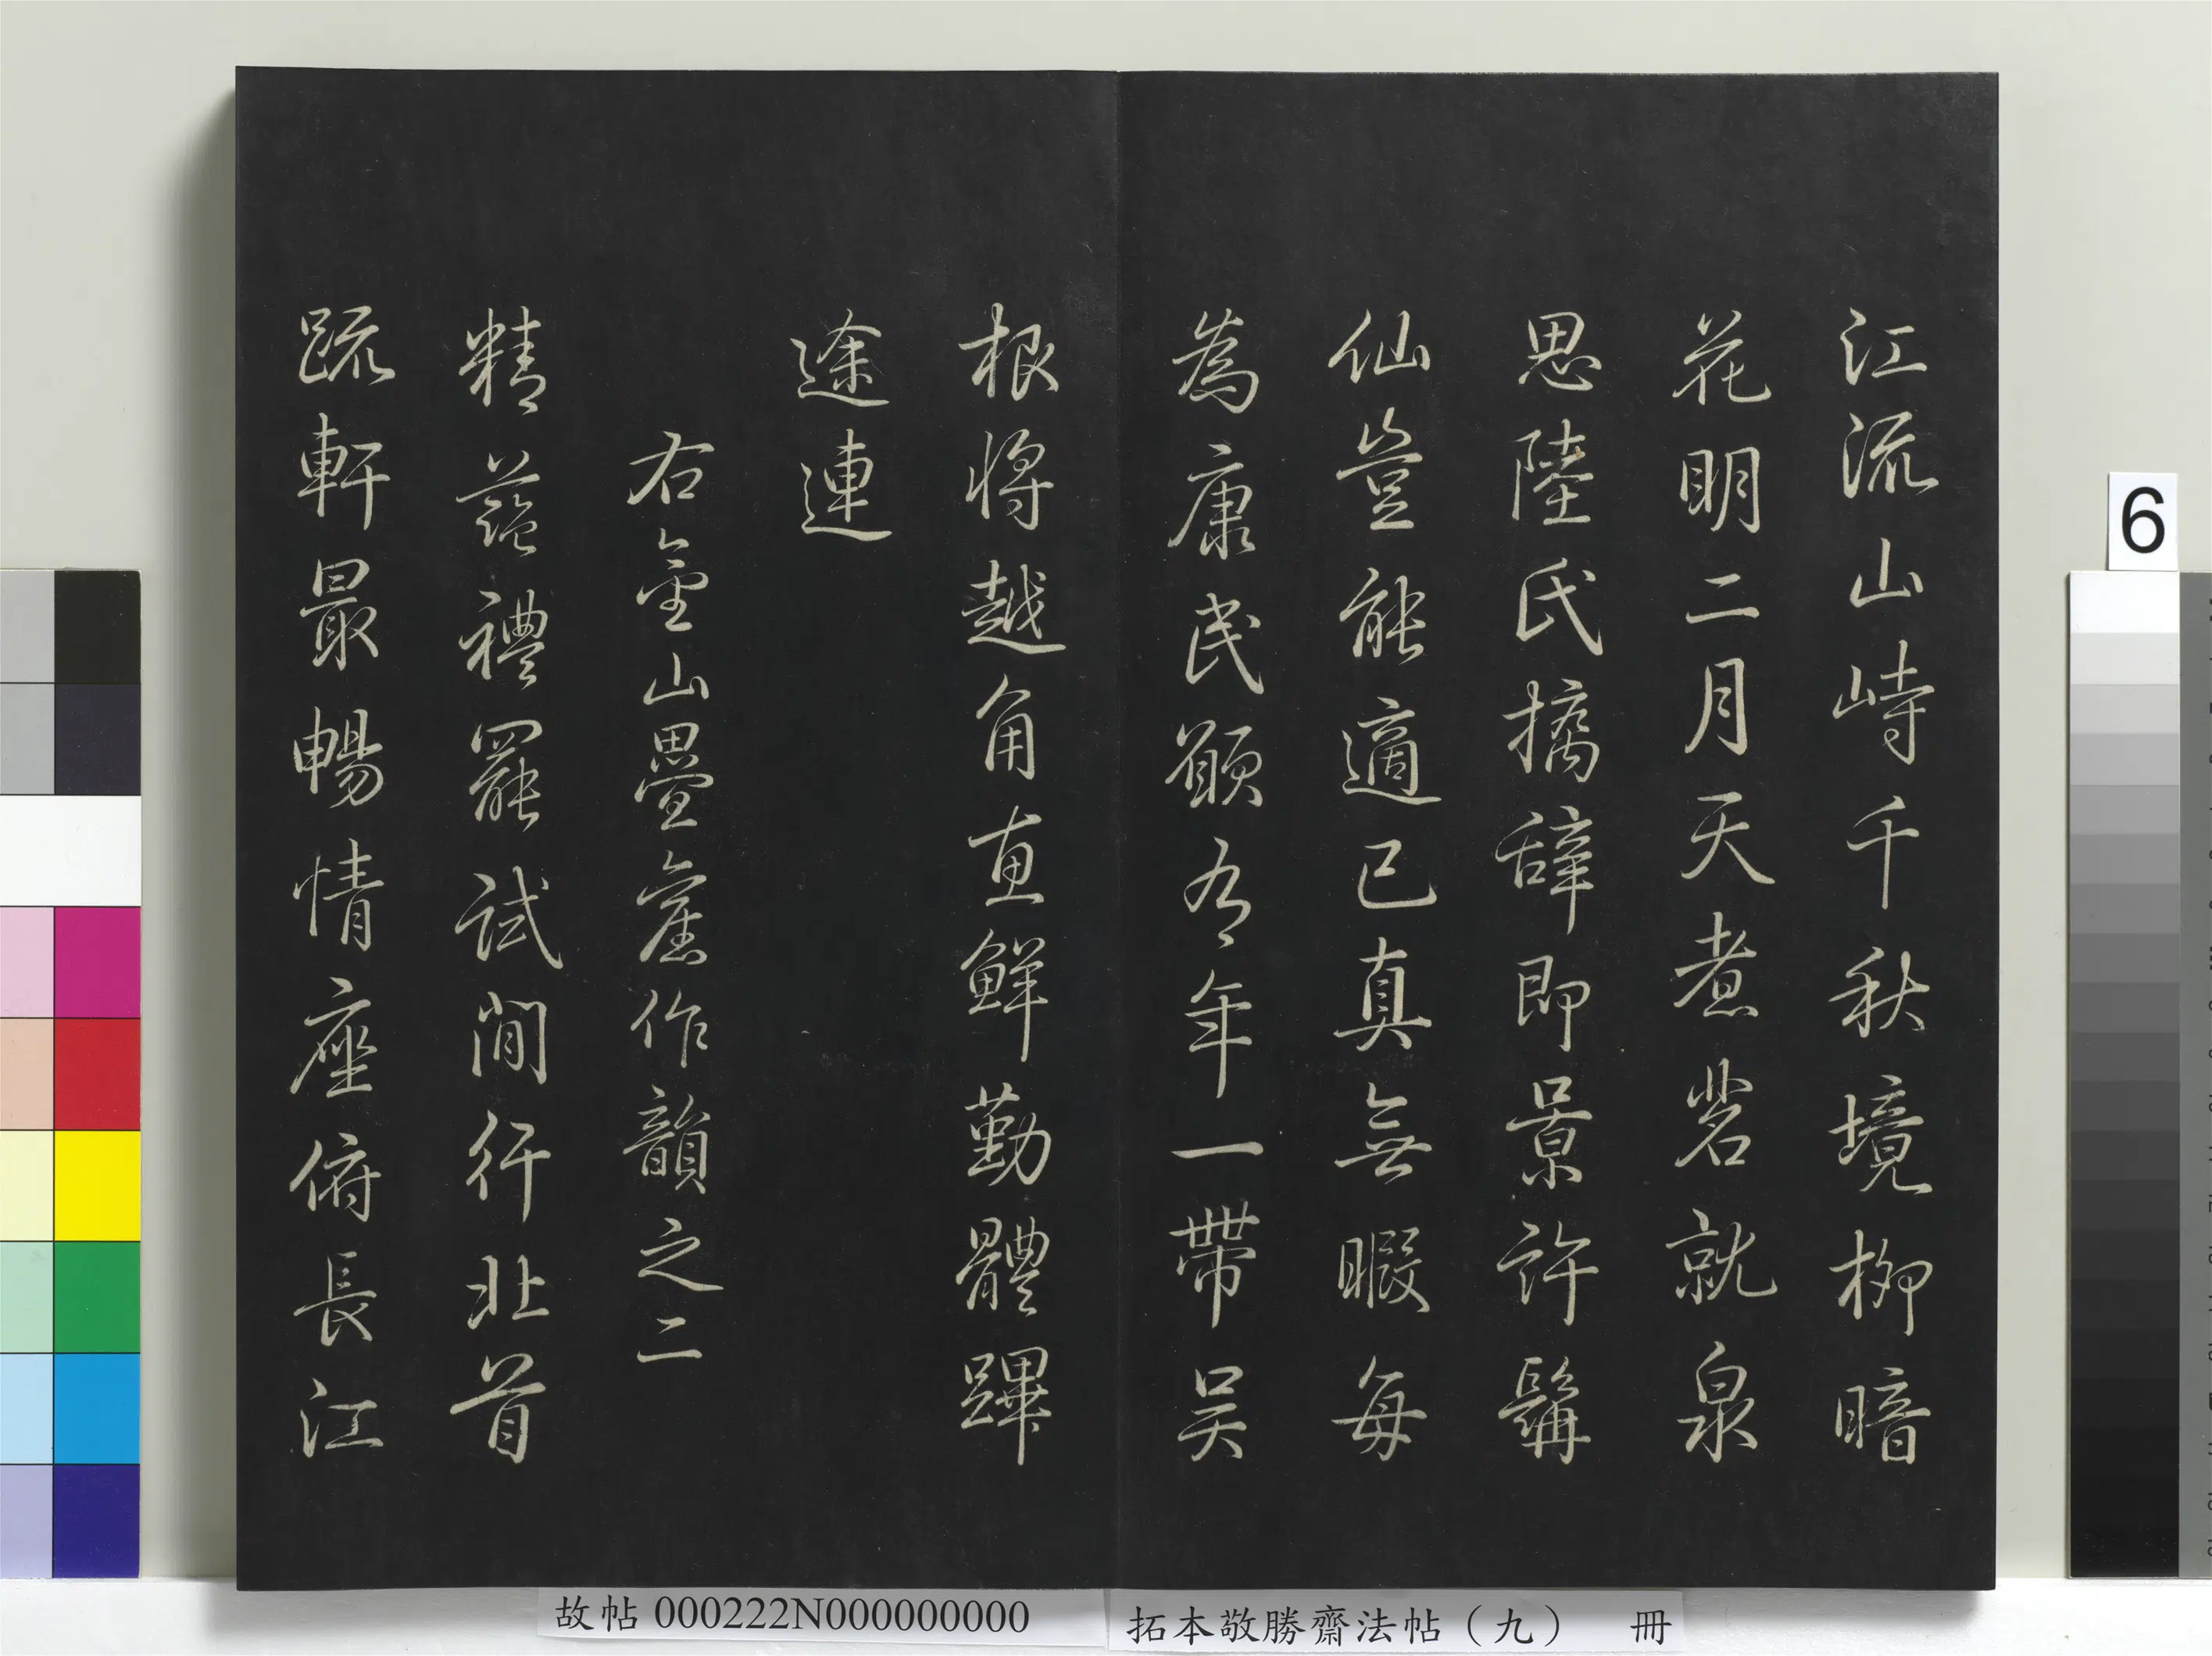 江流山峙千秋境柳暗
花明二月天煮茗就泉
思陸氏摛辭即景許髯
仙豈能適己真無暇每
為康民願有年一帶吴
根将越角直鮮勤體蹕
途連
右金山疊舊作韻之二
精藍禮罷試閒行北首
疏軒最暢情座俯長江
故帖 000222N000000000
拓本敬勝齋法帖（九） 冊
6